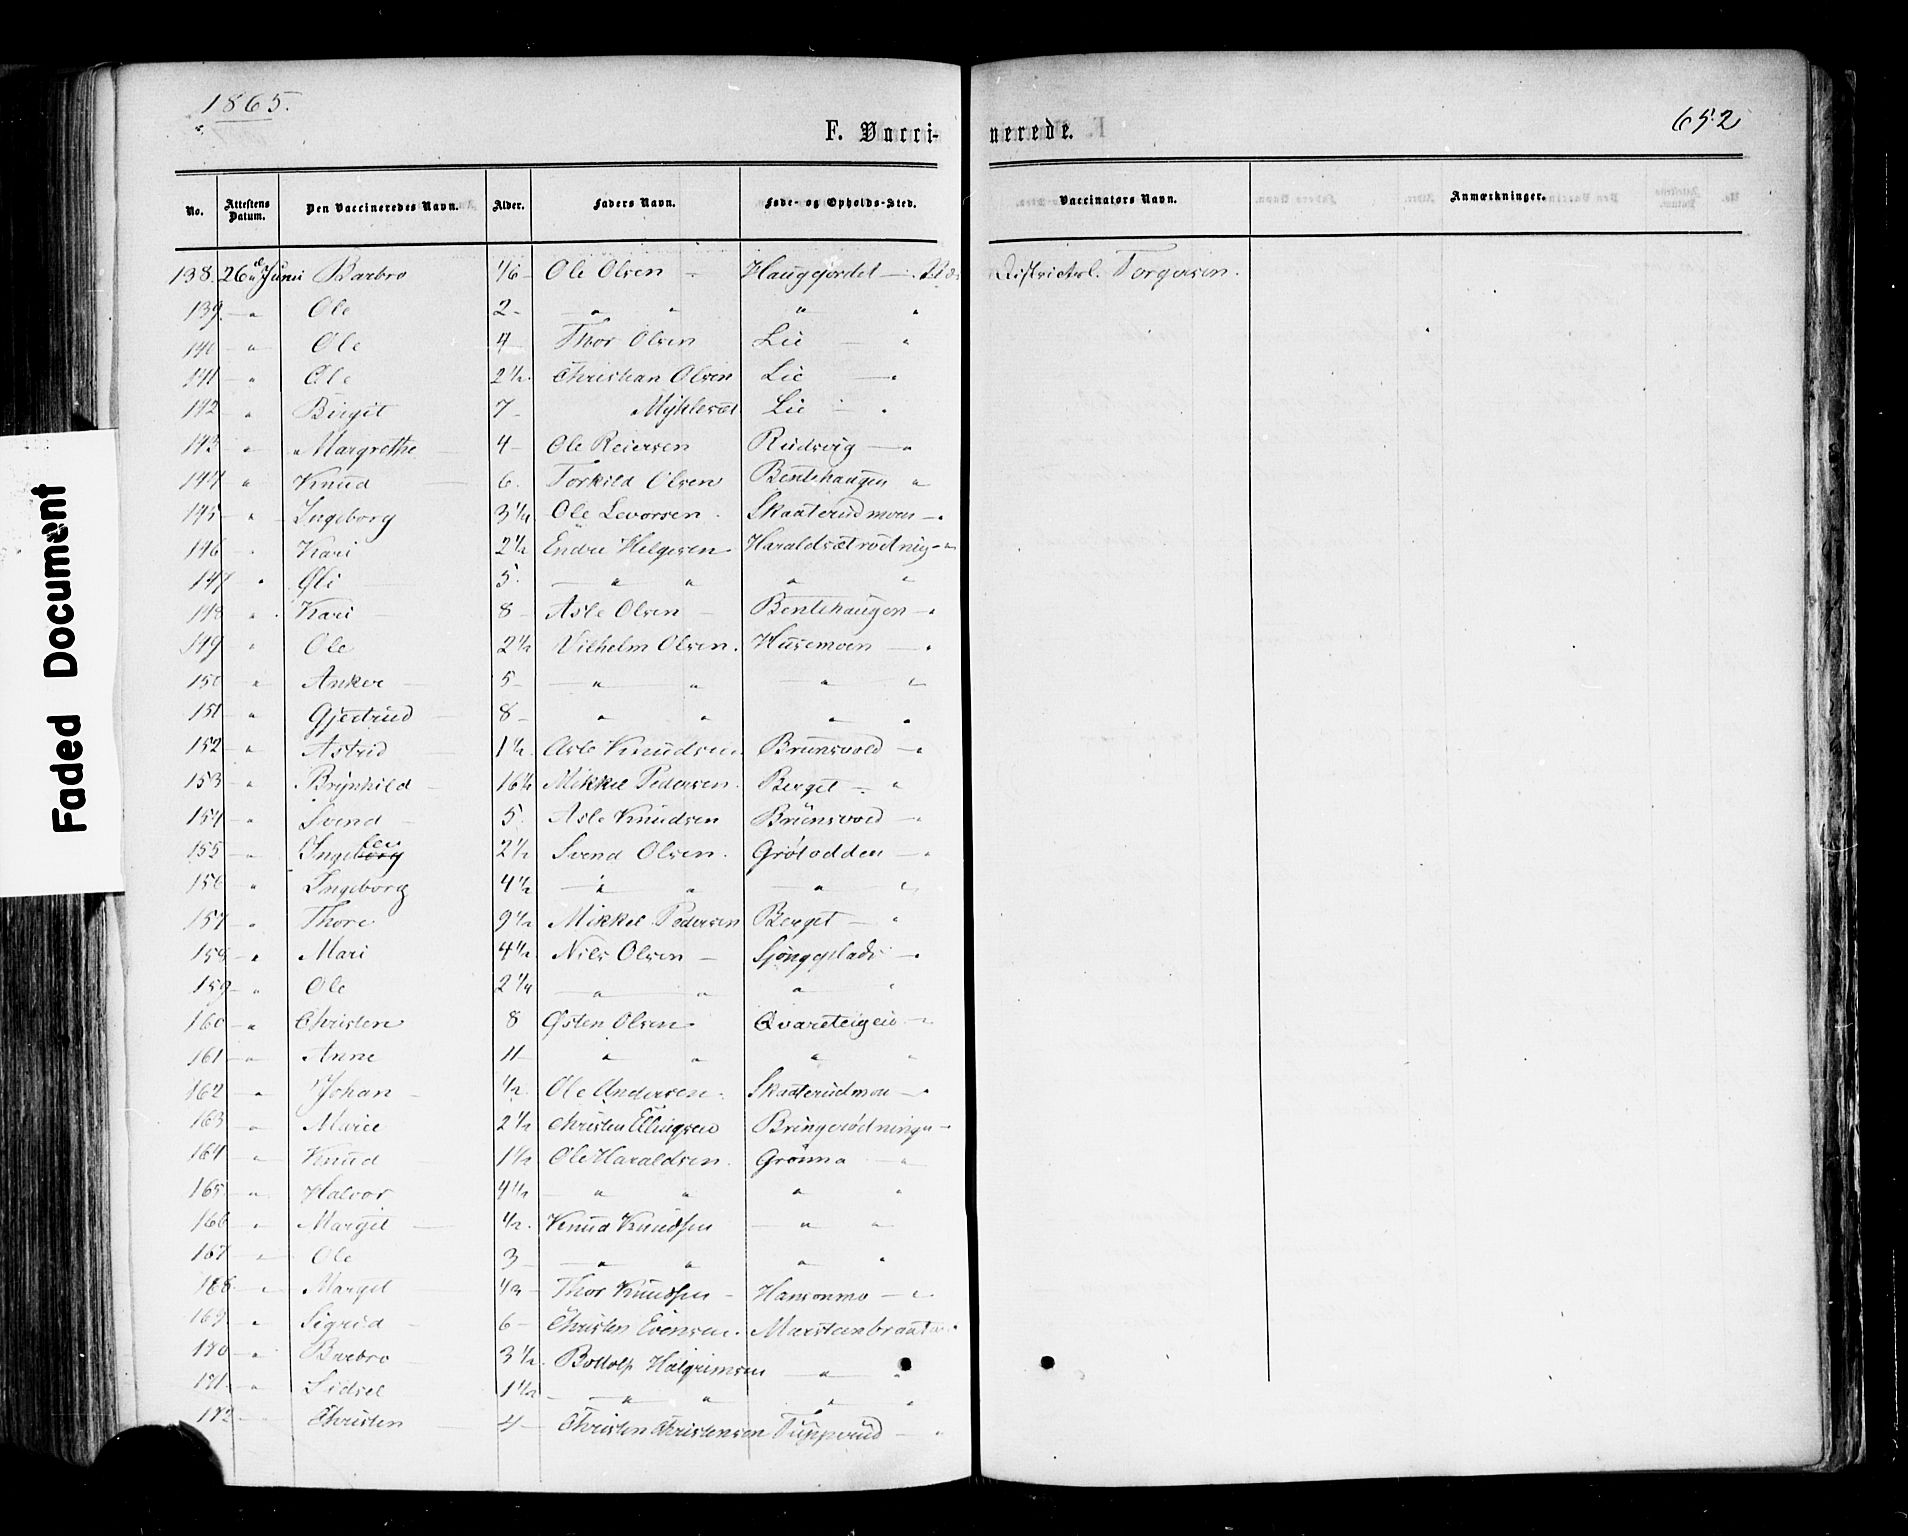 1865.
652
F. Vacci-nerede.
No. Attestens Datum. Den Vaccineredes Navn. Alder. Faders Navn. Føde- og Opholds-Sted. Vaccinators Navn. Anmærkninger.
138. 26 Juni Barbro Ole Olsen Haugjordet Torgersen.
139 " Ole 2 " " " "
140 " Ole 4 Thor Olsen Lie "
141 " Ole 2½ Christian Olsen Lie "
142 " Birgit 7 Lie "
143 " Margrethe 4 Ole Reiersen Rudsvig "
144 " Knud 6 Torkild Olsen Bentehaugen "
145 " Ingeborg 3¼ Ole Levorsen Skaaterudmoen "
146 " Kari 2½ Endre Helgesen "
147 " Oli 5 " " " "
148 " Kari 8 Asle Olsen Bentehaugen "
149 " Ole 2½ Vilhelm Olsen Husemoen "
150 " Anker 5 " " " "
151 " Gjertrud 8 " " " "
152 " Astrid 1½ Asle Knudsen Brunsvold "
153 " Brynhild 16½ Mikkel Pedersen Berget "
154 " Svend 5 Asle Knudsen Brunsvold "
155 " 2½ Svend Olsen Grøtodden "
156 " Ingeborg 4½ " " " "
157 " Thore 9½ Mikkel Pedersen Berget "
158 " Mari 4½ Nils Olsen "
159 " Ole 2¼ " " " "
160 " Christen 8 Østen Olsen Qvareteigen "
161 " Anne 11 " " " "
162 " Johan ½ Ole Andersen Skaaterudmoen "
163 " Marie 2½ Christen Ellingsen "
164 " Knud 1½ Ole Haraldsen Grønna "
165 " Halvor 4½ " " " "
166 " Margit ½ Knud Knudsen " "
167 " Ole 3 " " " "
168 " Margit Thor Knudsen Hansonmo "
169 " Sigrid 6 Christen Evensen Marsteinbraaten "
170 " Barbro 3½ Bottolf Halgrimsen " "
171 " Sidsel 1½ " " " "
172 Christen 4 Christen Christensen Tupprud "
Faded Document